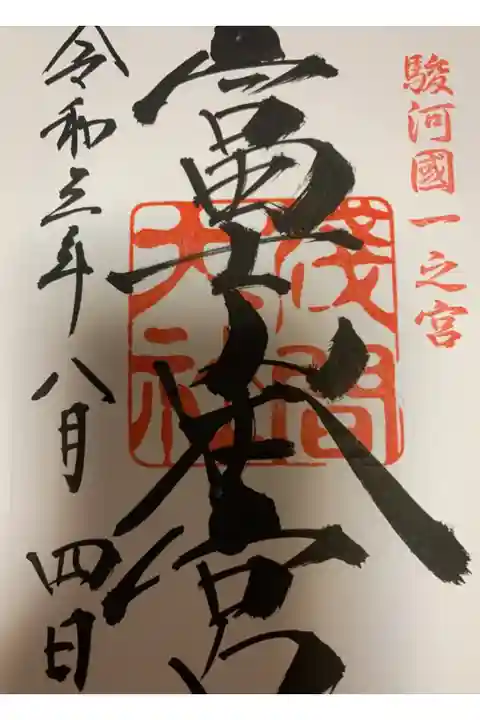 駿河國一之宮
富士本宮
淺間大社
令和三年八月四日